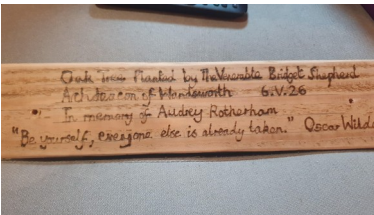 Oak Tree Planted by The Venerable Bridget Shepherd
Archdeacon of Wandsworth 6.V.26
In memory of Audrey Rotherham
"Be yourself, everyone else is already taken." Oscar Wilde